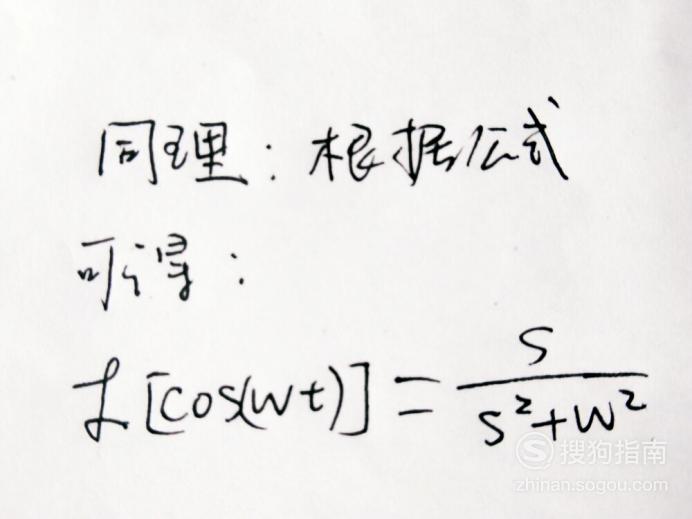 同理：根据公式
可得：
ℒ[cos(wt)] = s/(s²+w²)
搜狗指南
zhinan.sogou.com